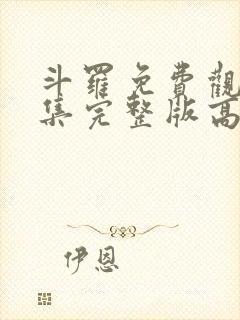 斗羅免費觀
集完整版高
伊恩